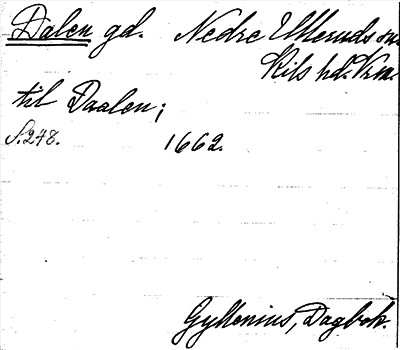 Dalen gd. Nedre Ulleruds sn.
Kils hd. Vrm.
til Daalen;
S. 248. 1662.
Gyllenius, Dagbok.